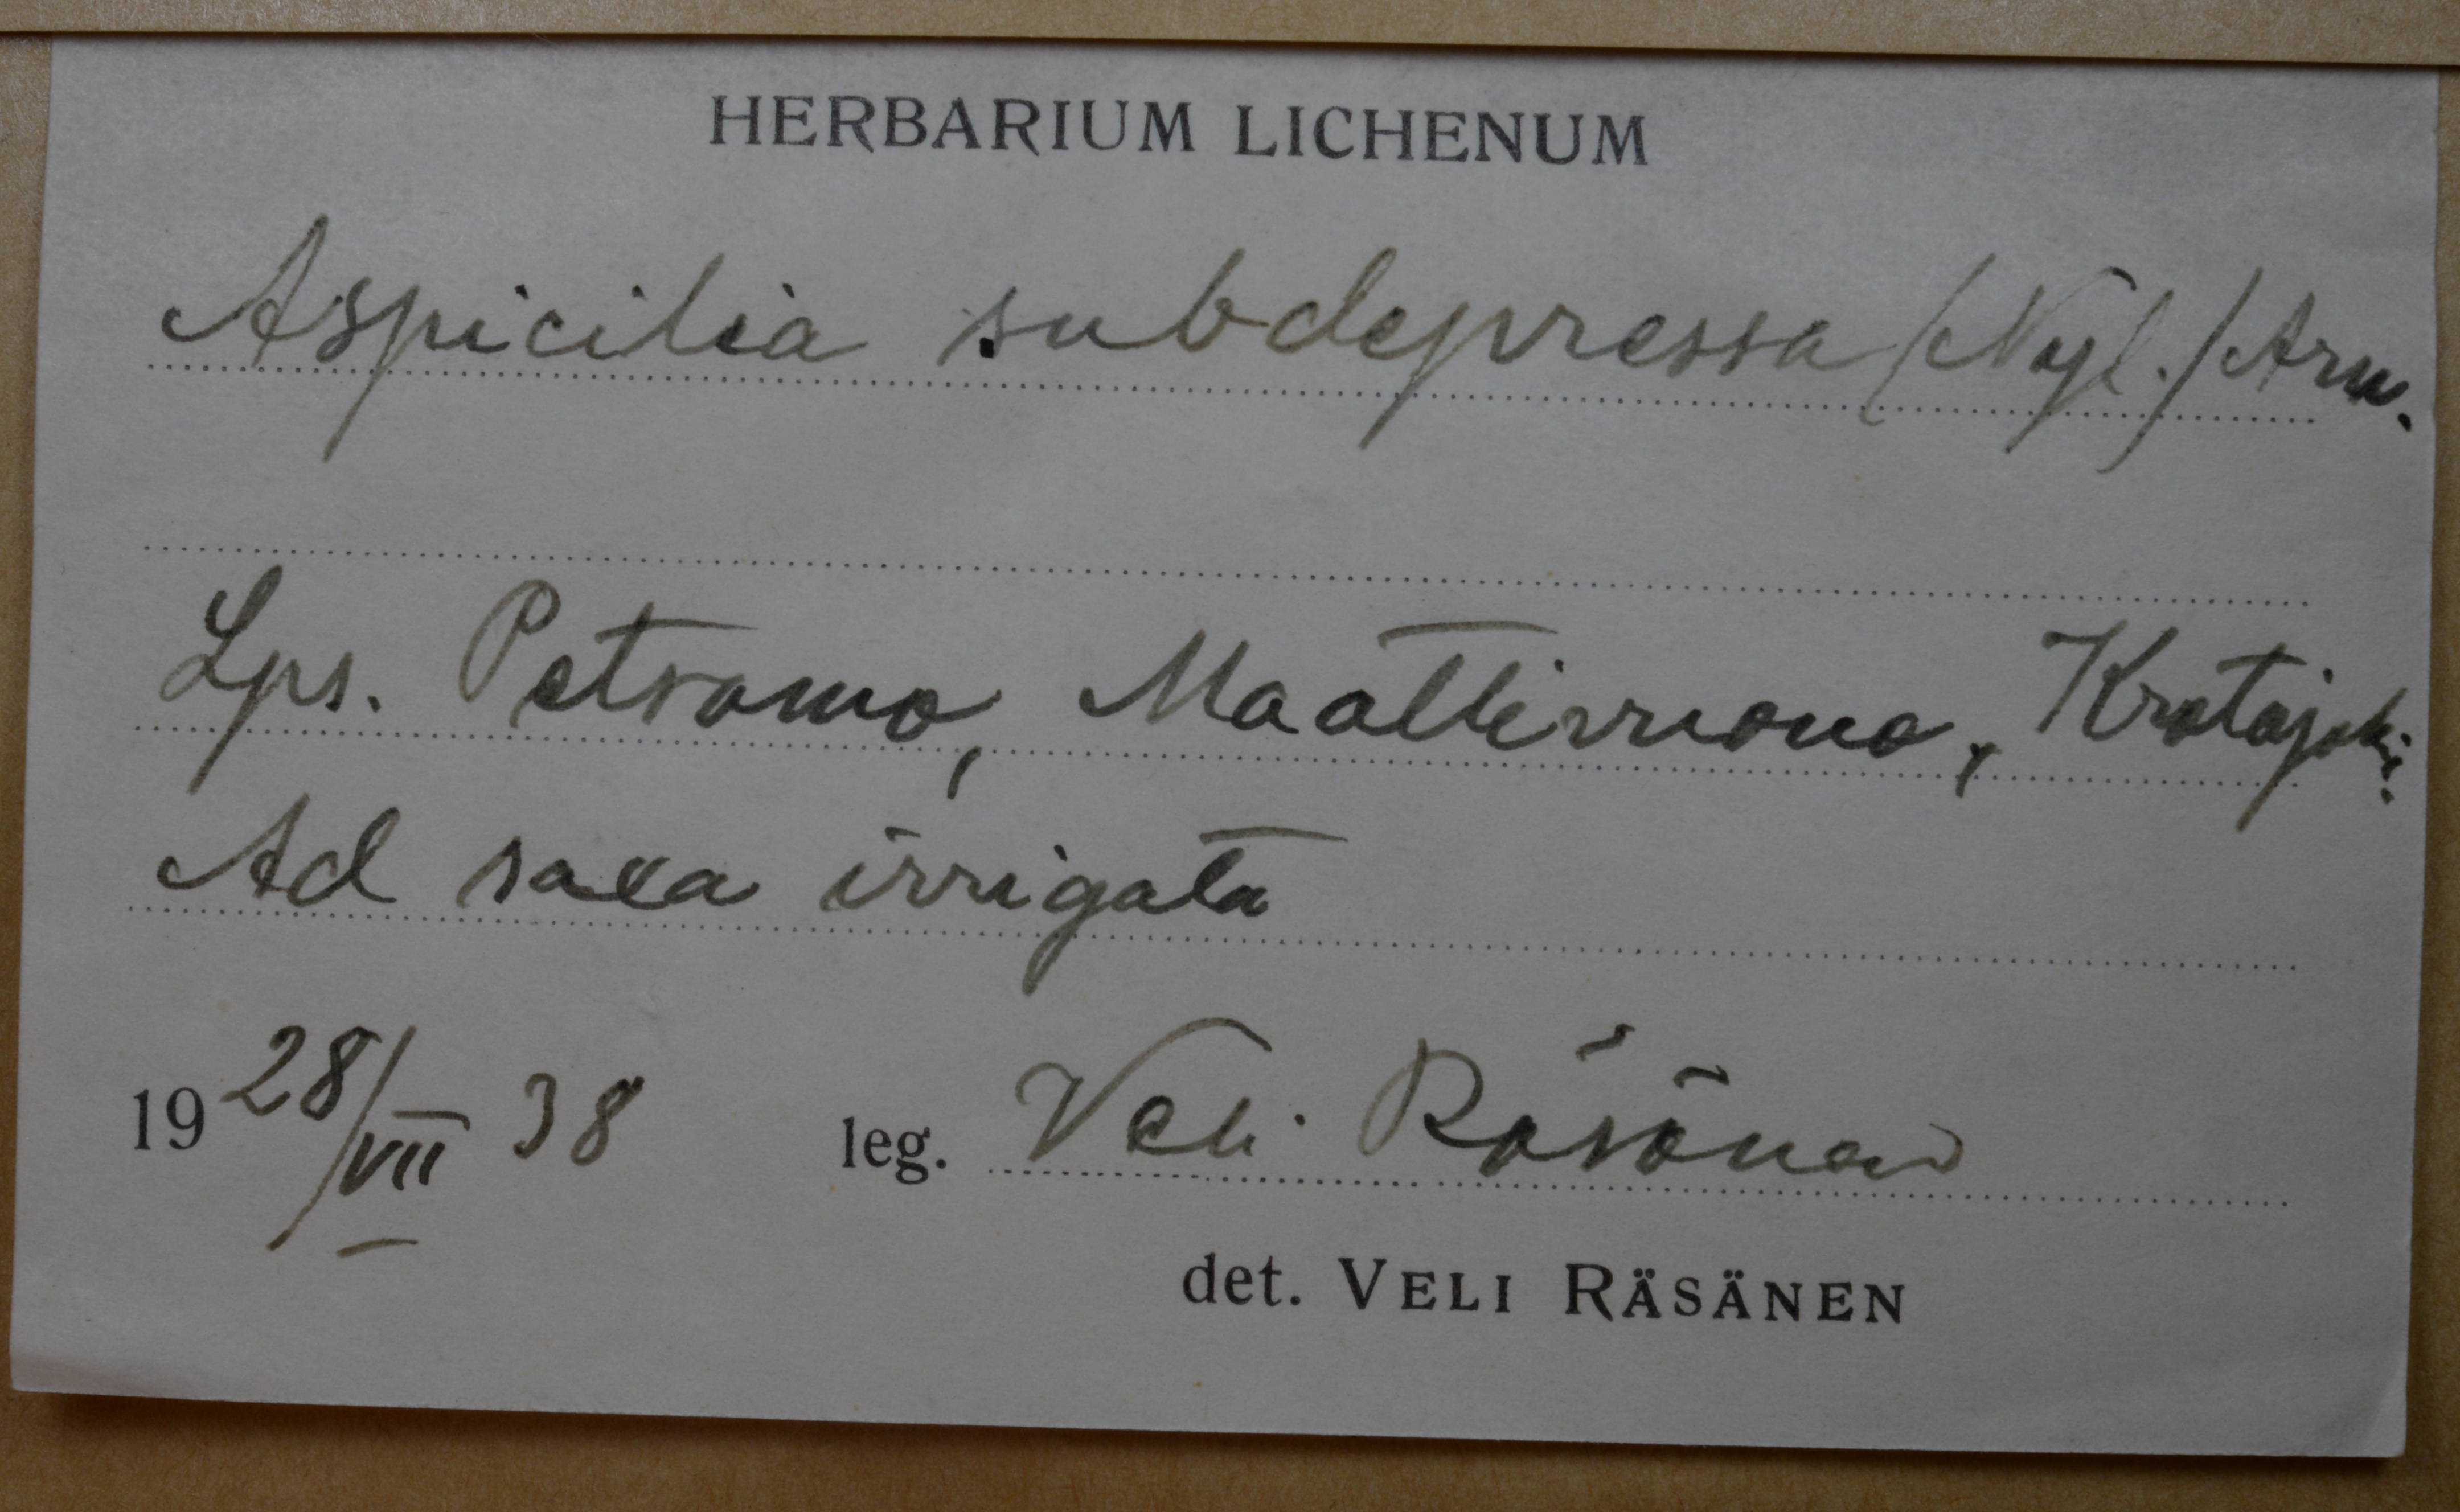 HERBARIUM LICHENUM
Aspicilia subdepressa (Nyl.) Arn.
Lps. Petsamo, Maattivuono,
Ad saxa irrigata
19 28/VII 38 leg. Veli Räsänen
det. VELI RÄSÄNEN